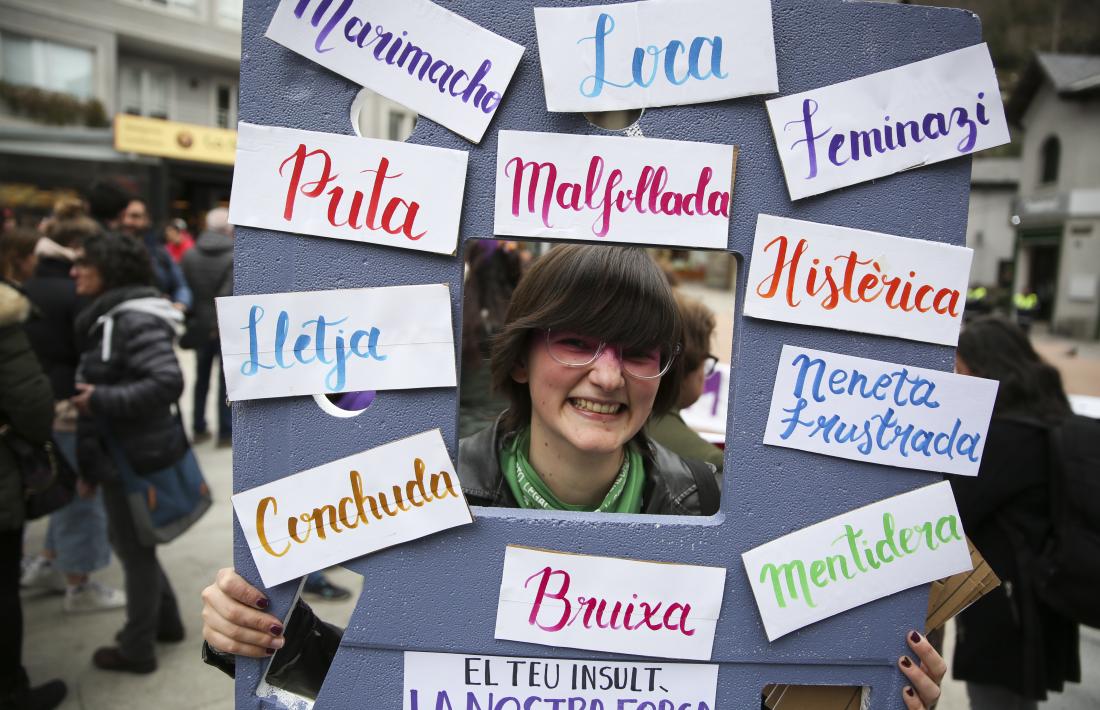 Marimacho
Loca
Feminazi
Puta
Malfollada
Histèrica
Lletja
Neneta
Frustrada
Conchuda
Mentidera
Bruixa
EL TEU INSULT,
LA NOSTRA FORÇA